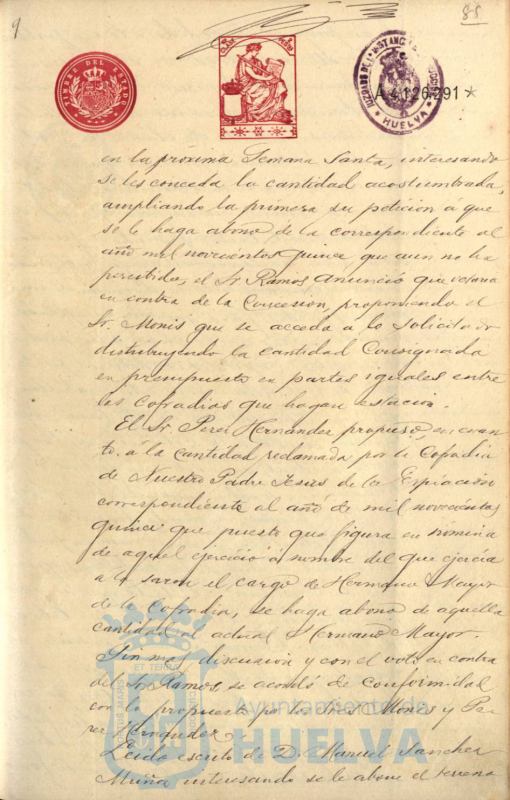 9
88
TIMBRE DEL ESTADO
A4126291*
HUELVA
en la próxima Semana Santa, interesando
se les conceda la cantidad acostumbrada,
ampliando la primera su petición á que
se le haga abono de la correspondiente al
año mil novecientos quince que aun no ha
percibido, el Sr. Ramos anunció que votaria
en contra de la Concesión, proponiendo el
Sr. Monis que se acceda a lo solicitado
distribuyendo la cantidad Consignada
en presupuesto en partes iguales entre
las Cofradias que hagan estación.
El Sr. Perez Hernandez propuso en cuan
to á la cantidad reclamada por la Cofradia
de Nuestro Padre Jesús de la Expiación
correspondiente al año de mil novecientos
quince que puesto que figura en nómina
de aquel ejercicio á nombre del que ejercía
a la sazon el cargo de Hermano Mayor
de la Cofradia, se haga abono de aquella
cantidad al actual Hermano Mayor.
Sin mas discusion y con el voto en contra
del Sr. Ramos, se acordó de conformidad
con lo propuesto por los Sres. Monis y Pe
rez Hernandez.
Leido escrito de D. Manuel Sanchez
Muñia interesando se le abone el terreno
Ayuntamiento de
HUELVA